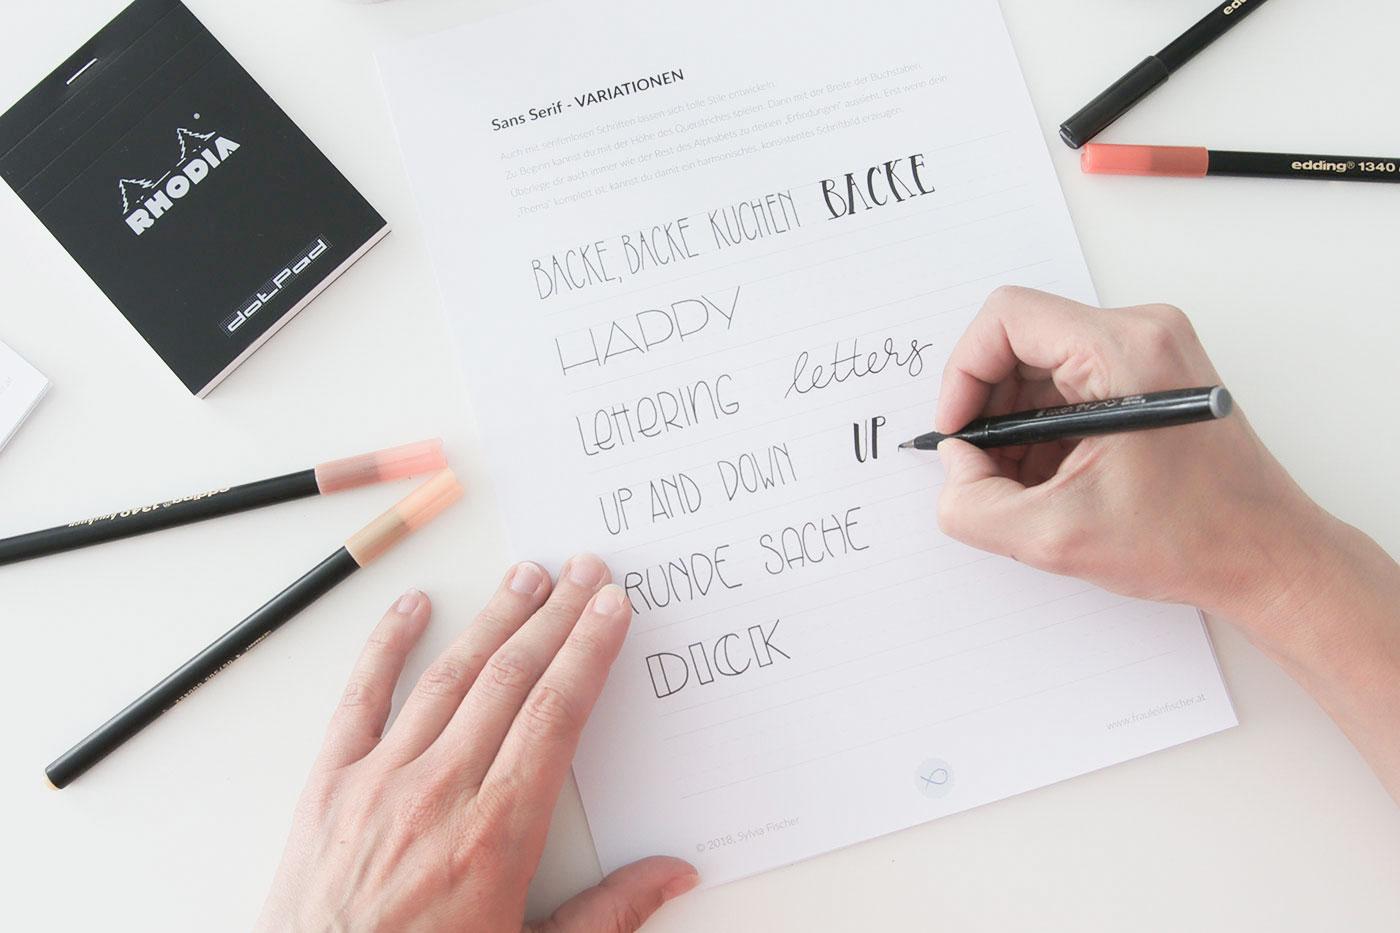 RHODIA
dotPad
Sans Serif - VARIATIONEN
Auch mit serifenlosen Schriften lassen sich tolle Stile entwickeln.
Zu Beginn kannst du mit der Höhe des Querstriches spielen. Dann mit der Breite der Buchstaben.
Überlege dir auch immer wie der Rest des Alphabets zu deinen „Erfindungen" aussieht. Erst wenn dein
„Thema" komplett ist, kannst du damit ein harmonisches, konsistentes Schriftbild erzeugen.
BACKE, BACKE KUCHEN BACKE
HAPPY
LETTERING letters
UP AND DOWN UP
RUNDE SACHE
DICK
www.frauleinfischer.at
© 2018, Sylvia Fischer
edding® 1340
edding® 1340